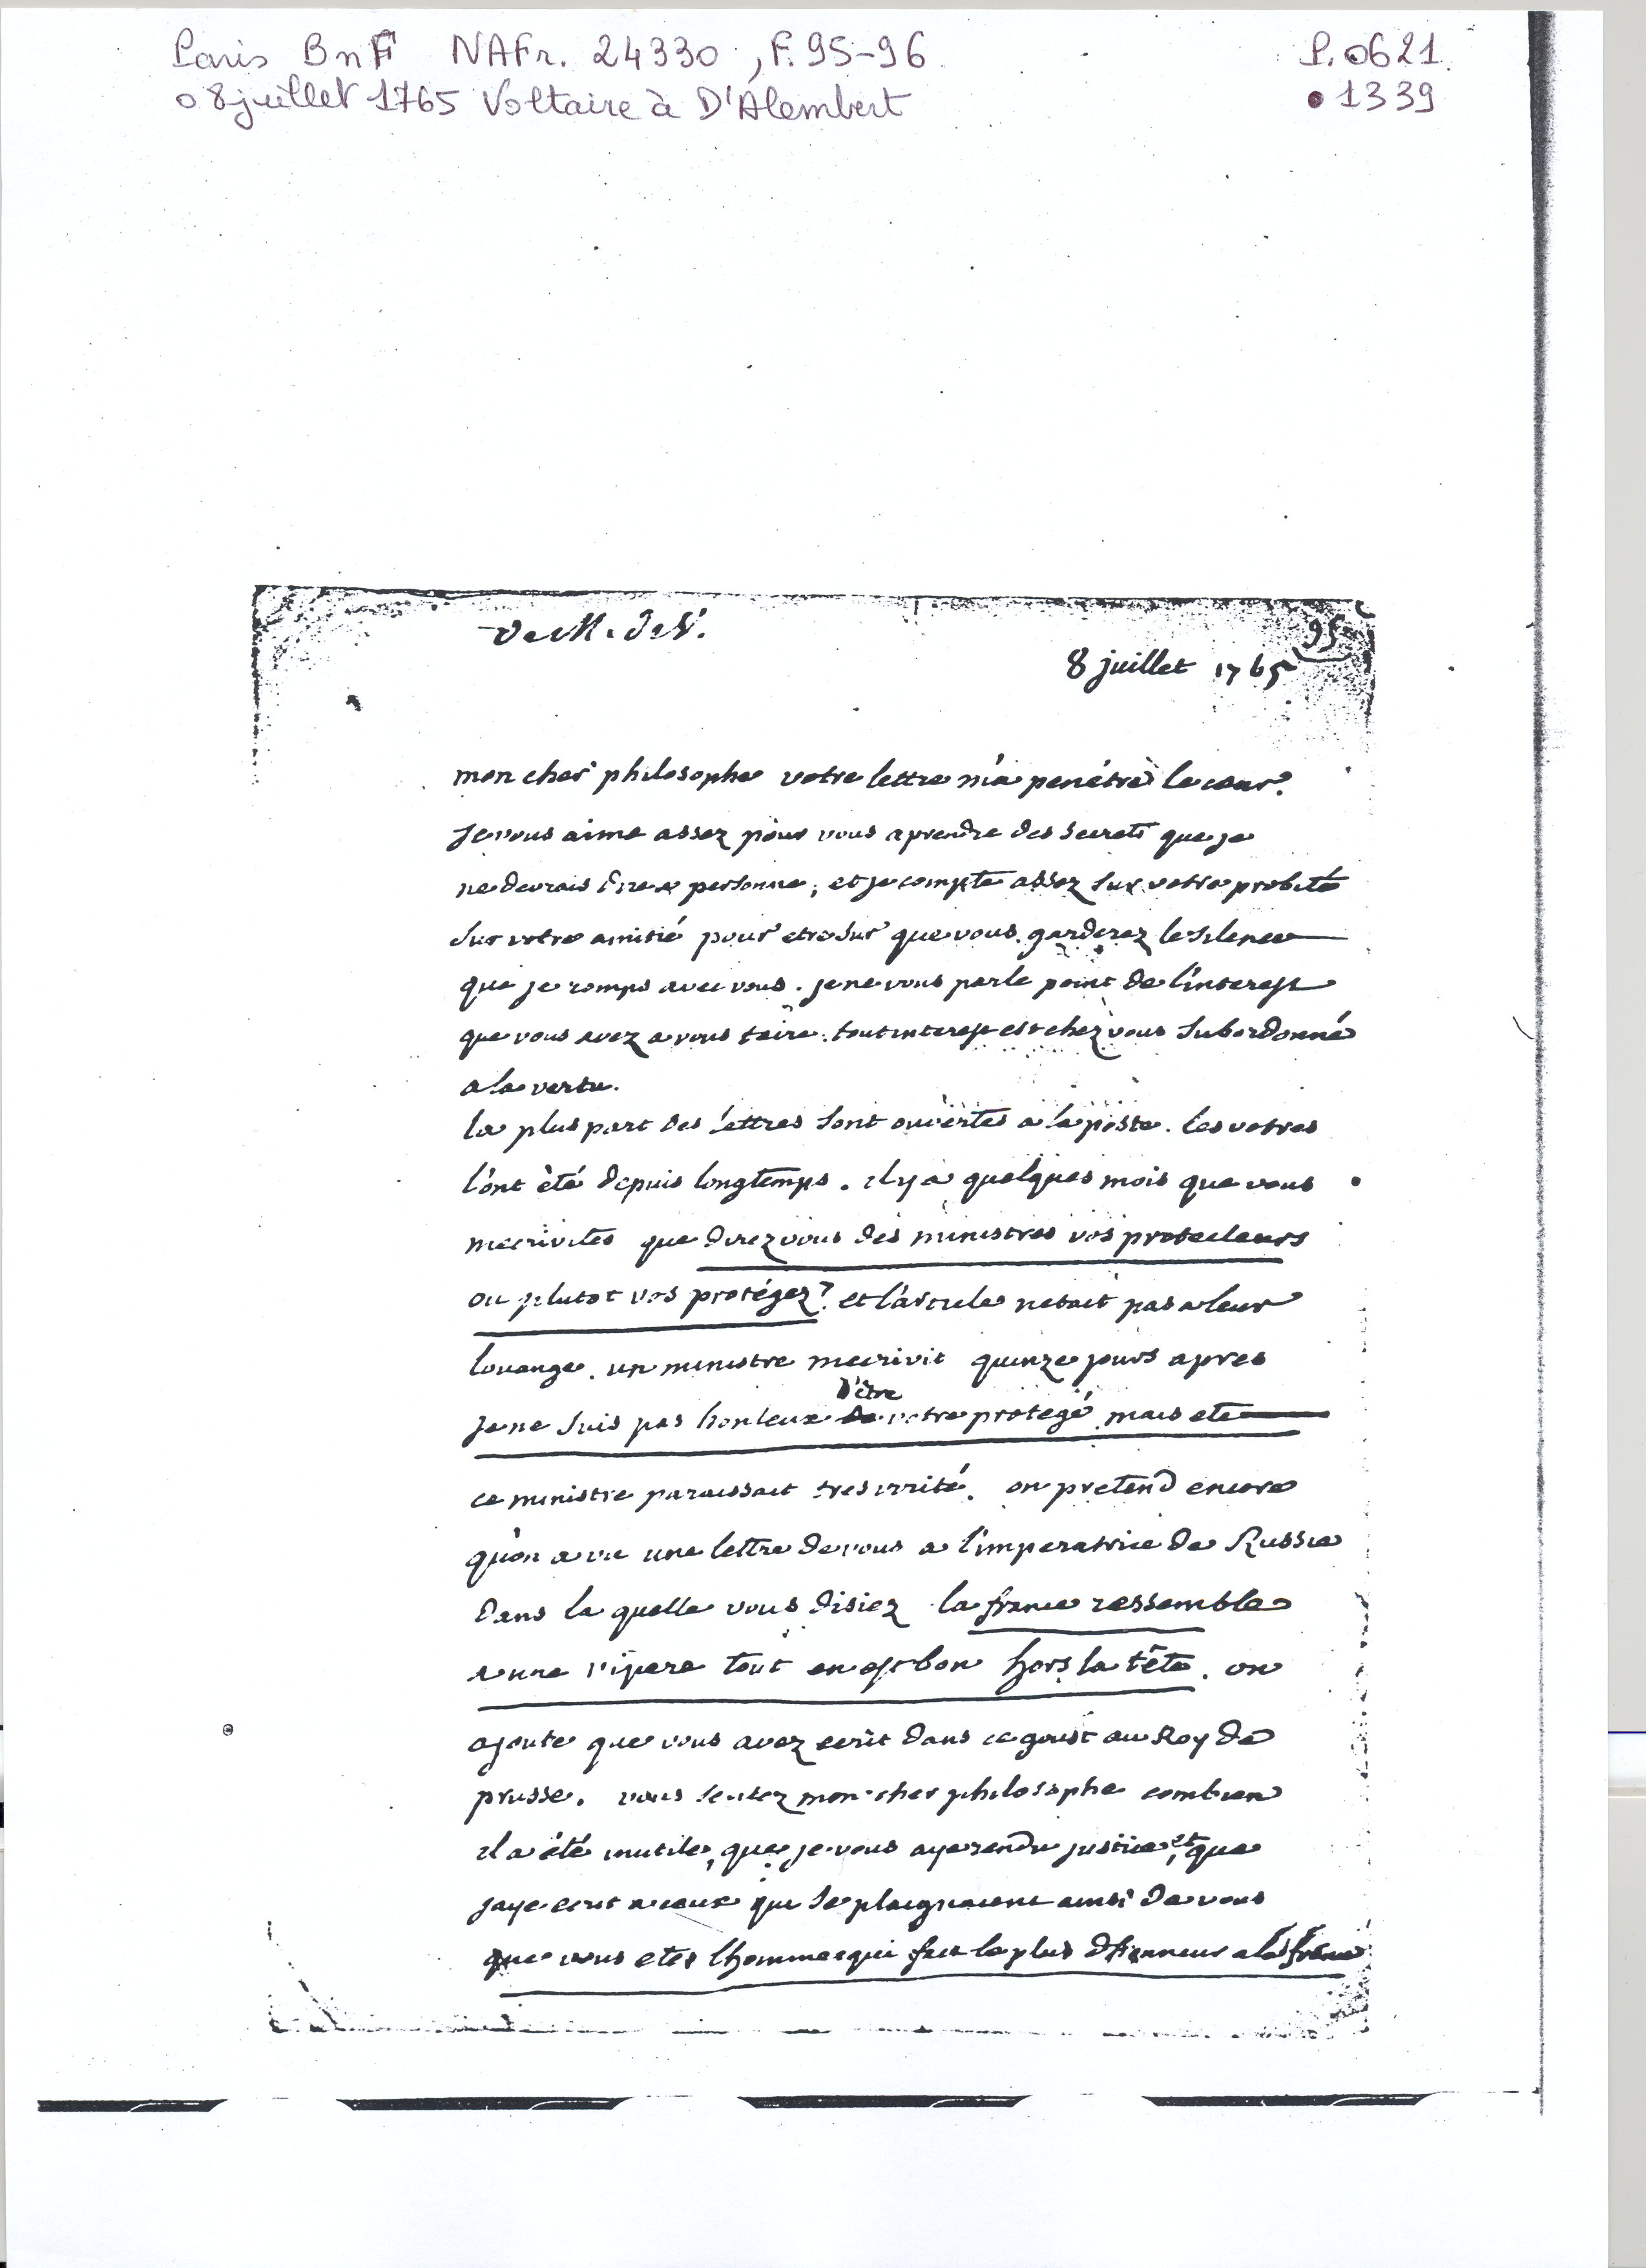 Paris BnF NAFr. 24330, F. 95-96
P. 0621
08 juillet 1765 Voltaire à D'Alembert
1339
De M. de V.
95
8 juillet 1765
mon cher philosophe votre lettre m'a penétré le cœur.
Je vous aime assez pour vous aprendre des secrets que je
ne devrais dire a personne, et je compte assez sur votre probité
sur votre amitié pour etre sur que vous garderez le silence
que je romps avec vous. je ne vous parle point de l'interest
que vous avez a vous taire. tout interest est chez vous subordonné
a la vertu.
la plus part des lettres sont ouvertes a la poste. les votres
l'ont été depuis longtemps. il y a quelques mois que vous
mecrivites que direz vous des ministres vos protecteurs
ou plutot vos protégez? et l'article netait pas a leur
louange. un ministre mecrivit quinze jours apres
d'être
je ne suis pas honteux de votre protegé mais etc
ce ministre paraissait tres irrité. on pretend encore
qu'on a vu une lettre de vous a l'imperatrice de Russie
dans la quelle vous disiez la france ressemble
a une vipere tout en est bon hors la tête. on
ajoute que vous avez ecrit dans ce goust au Roy de
prusse. vous sentez mon cher philosophe combien
il a été inutile, que je vous aye rendu justice, et que
jaye ecrit a ceux qui se plaignaient ainsi de vous
que vous etes lhomme qui fait le plus dhonneur a la france